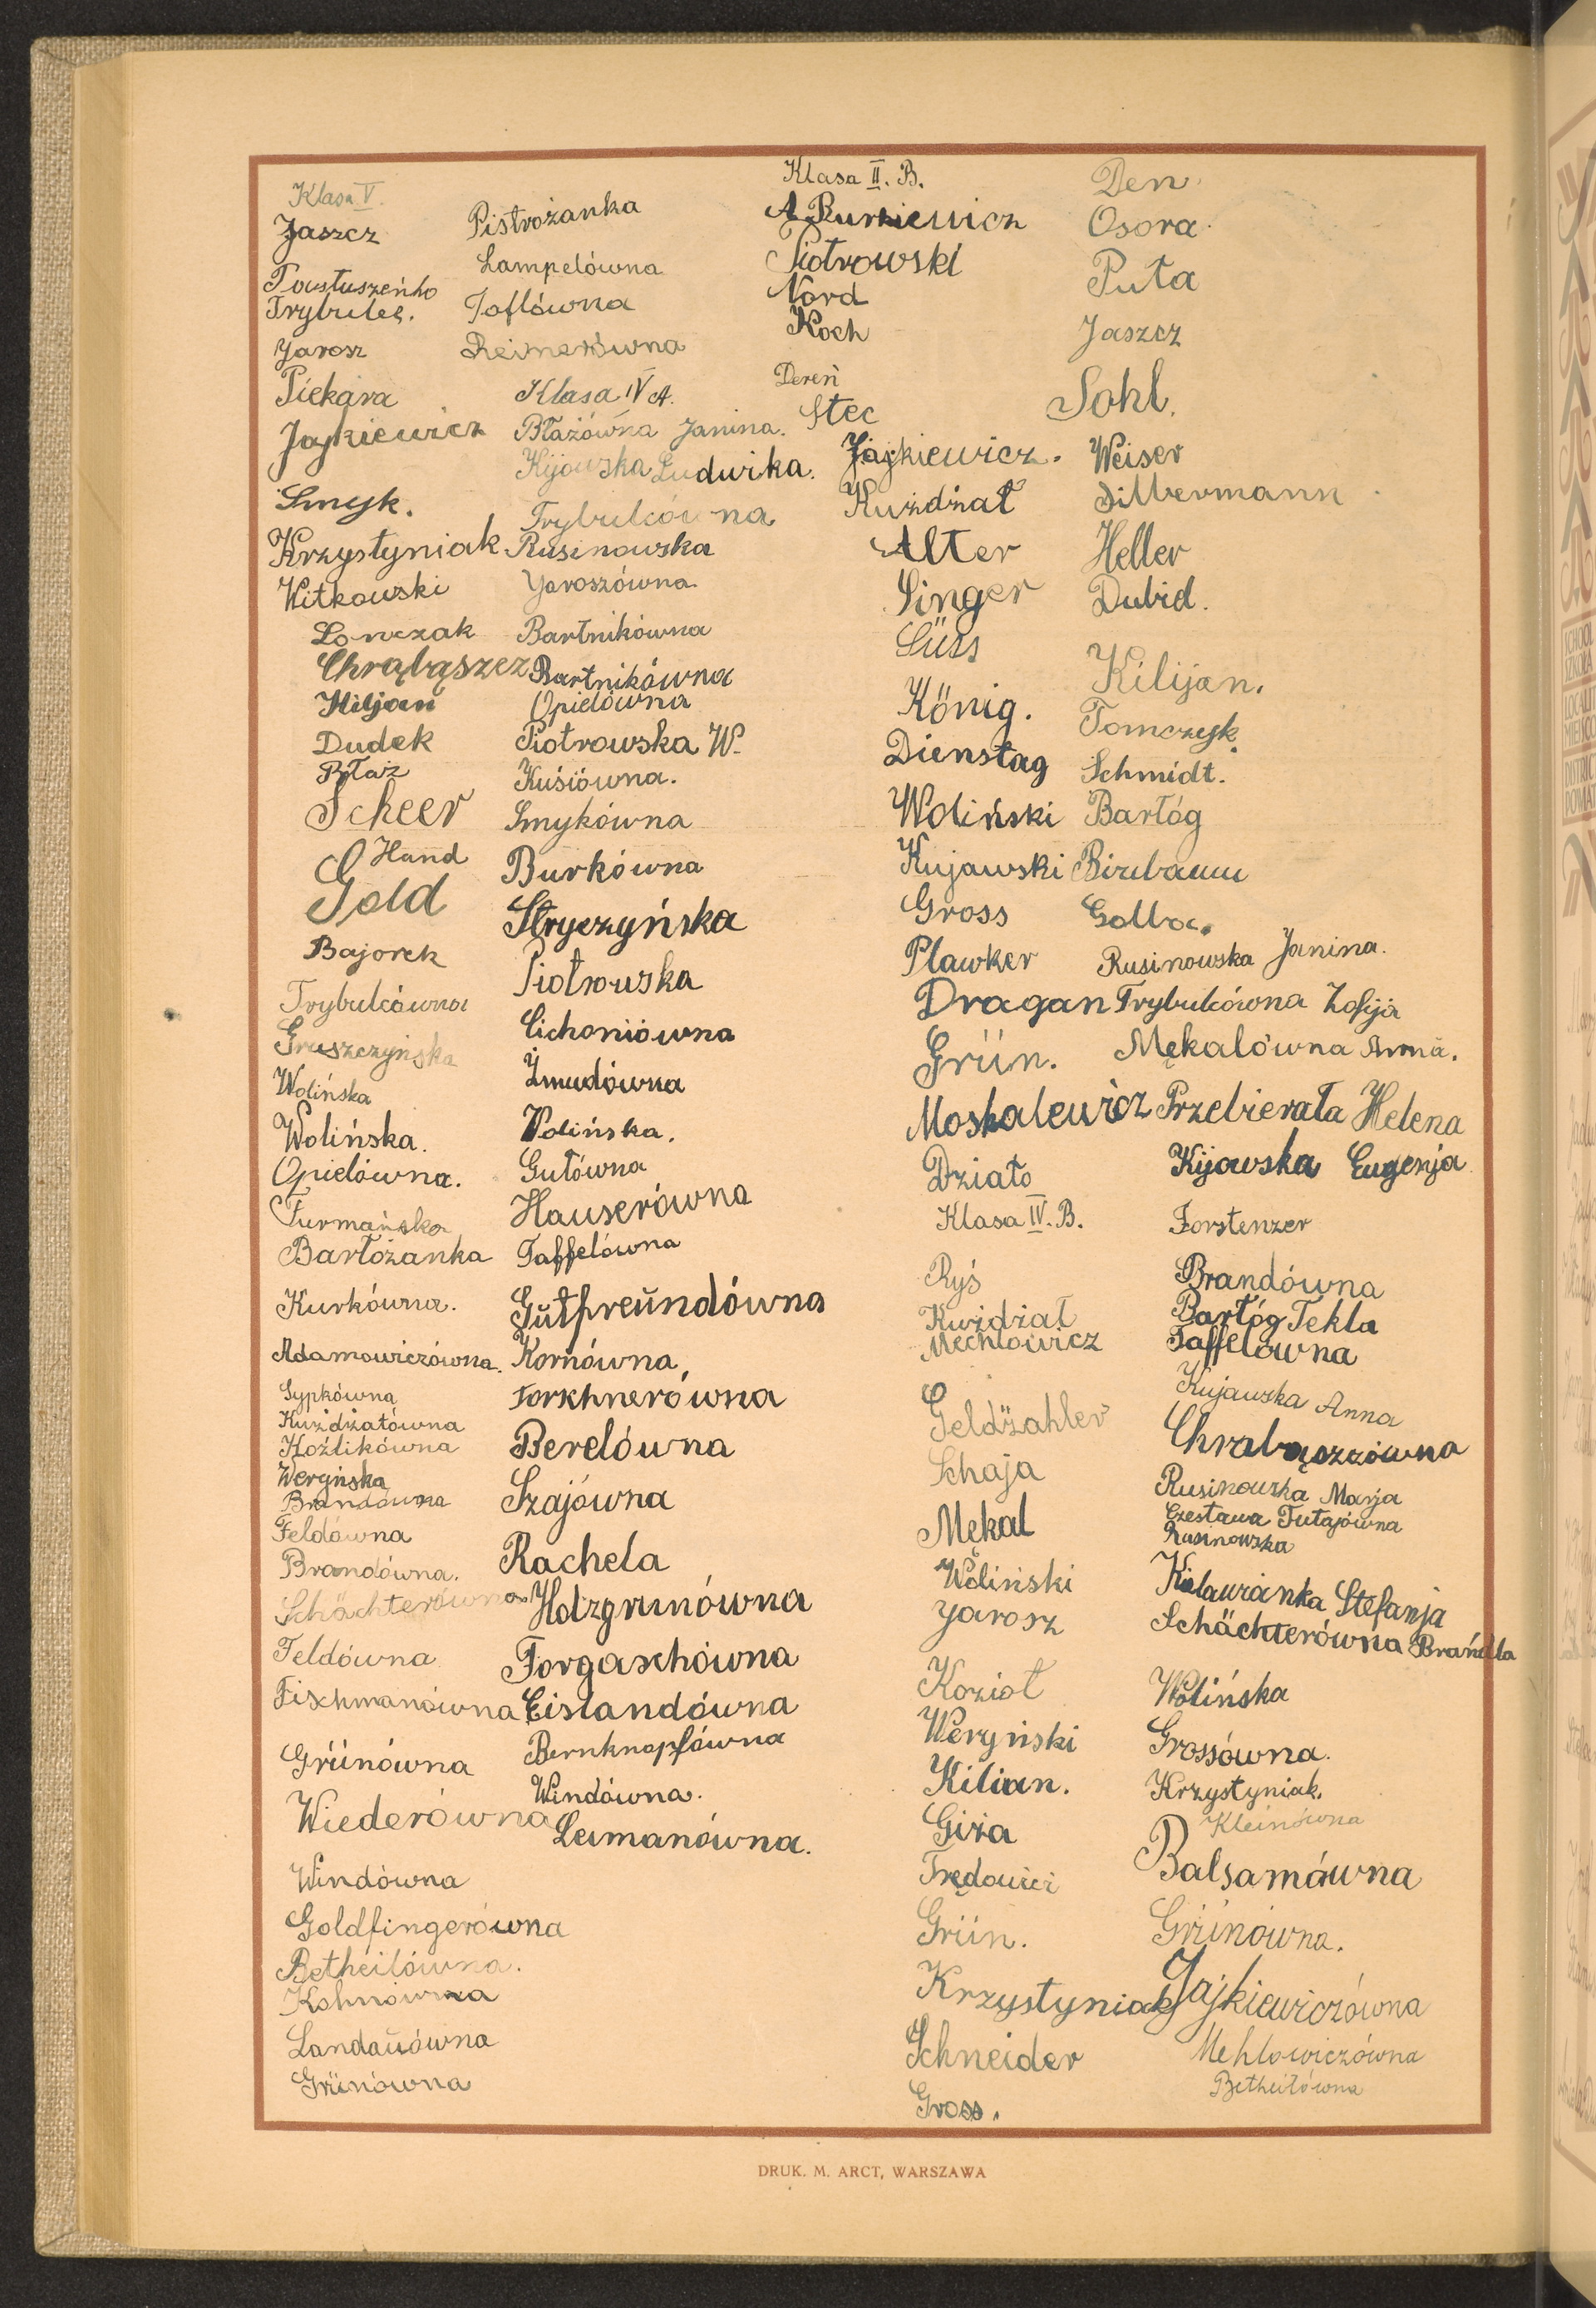 Klasa V.
Jaszcz
Pastuszeńko
Trybulec.
Jarosz
Piekara
Jajkiewicz
Smyk.
Krzystyniak
Witkowski
Łowczak
Chrabąszcz
Kiljan
Dudek
Błaż
Scheer
Hand
Gold
Bajorek
Trybulcówna
Gruszczyńska
Wolińska
Wolińska.
Opielówna.
Furmańska
Bartożanka
Kurkówna.
Adamowiczówna.
Sypkówna
Kuździałówna
Koźlikówna
Weryńska
Brandówna
Feldówna
Brandówna.
Schächterówna
Feldówna
Fischmanówna
Grünówna
Wiederówna
Windówna
Goldfingerówna
Betheilówna.
Kohnówna
Landauówna
Grünówna
Pistrożanka
Lampelówna
Toflówna
Reimerówna
Klasa IV A.
Błażówna Janina.
Kijowska Ludwika.
Trybulcówna
Rusinowska
Jaroszówna
Bartnikówna
Bartnikówna
Opielówna
Piotrowska W.
Kusiówna.
Smykówna
Burkówna
Stryczyńska
Piotrowska
Cichoniówna
Żmudówna
Wolińska.
Gutówna
Hauserówna
Taffelówna
Gutfreundówna
Kornówna
Torkhnerówna
Berelówna
Szajówna
Rachela
Holzgrunówna
Forgaschówna
Eislandówna
Bernknopfówna
Windówna.
Leimanówna.
Klasa II. B.
A. Burkiewicz
Piotrowski
Nord
Koch
Dereń
Stec
Jajkiewicz.
Kuździał
Alter
Singer
Süss
König.
Dienstag
Woliński
Kujawski
Gross
Plawker
Dragan
Grün.
Moskalewicz
Działo
Klasa IV. B.
Ryś
Kuździał
Mechlowicz
Geldzahler
Schaja
Mękal
Woliński
Jarosz
Kozioł
Weryński
Kilian.
Giża
Grün.
Krzystyniak
Schneider
Gross.
Den
Osora
Puta
Jaszcz
Sohl.
Weiser
Silbermann
Heller
Dubid.
Kilijan.
Tomczyk
Schmidt.
Bartóg
Birnbaum
Golba.
Rusinowska Janina.
Trybulcówna Zofija
Mękalówna Anna.
Przebierała Helena
Kijowska Eugenja
Forstenzer
Brandówna
Bartóg Tekla
Taffelówna
Kujawska Anna
Chrabąszczówna
Rusinowska Marja
Czesława Tutajówna
Rusinowska
Stefanja
Schächterówna Brandla
Wolińska
Grossówna.
Krzystyniak.
Kleinówna
Balsamówna
Grünówna.
Jajkiewiczówna
Mehlowiczówna
Betheilówna
DRUK. M. ARCT, WARSZAWA